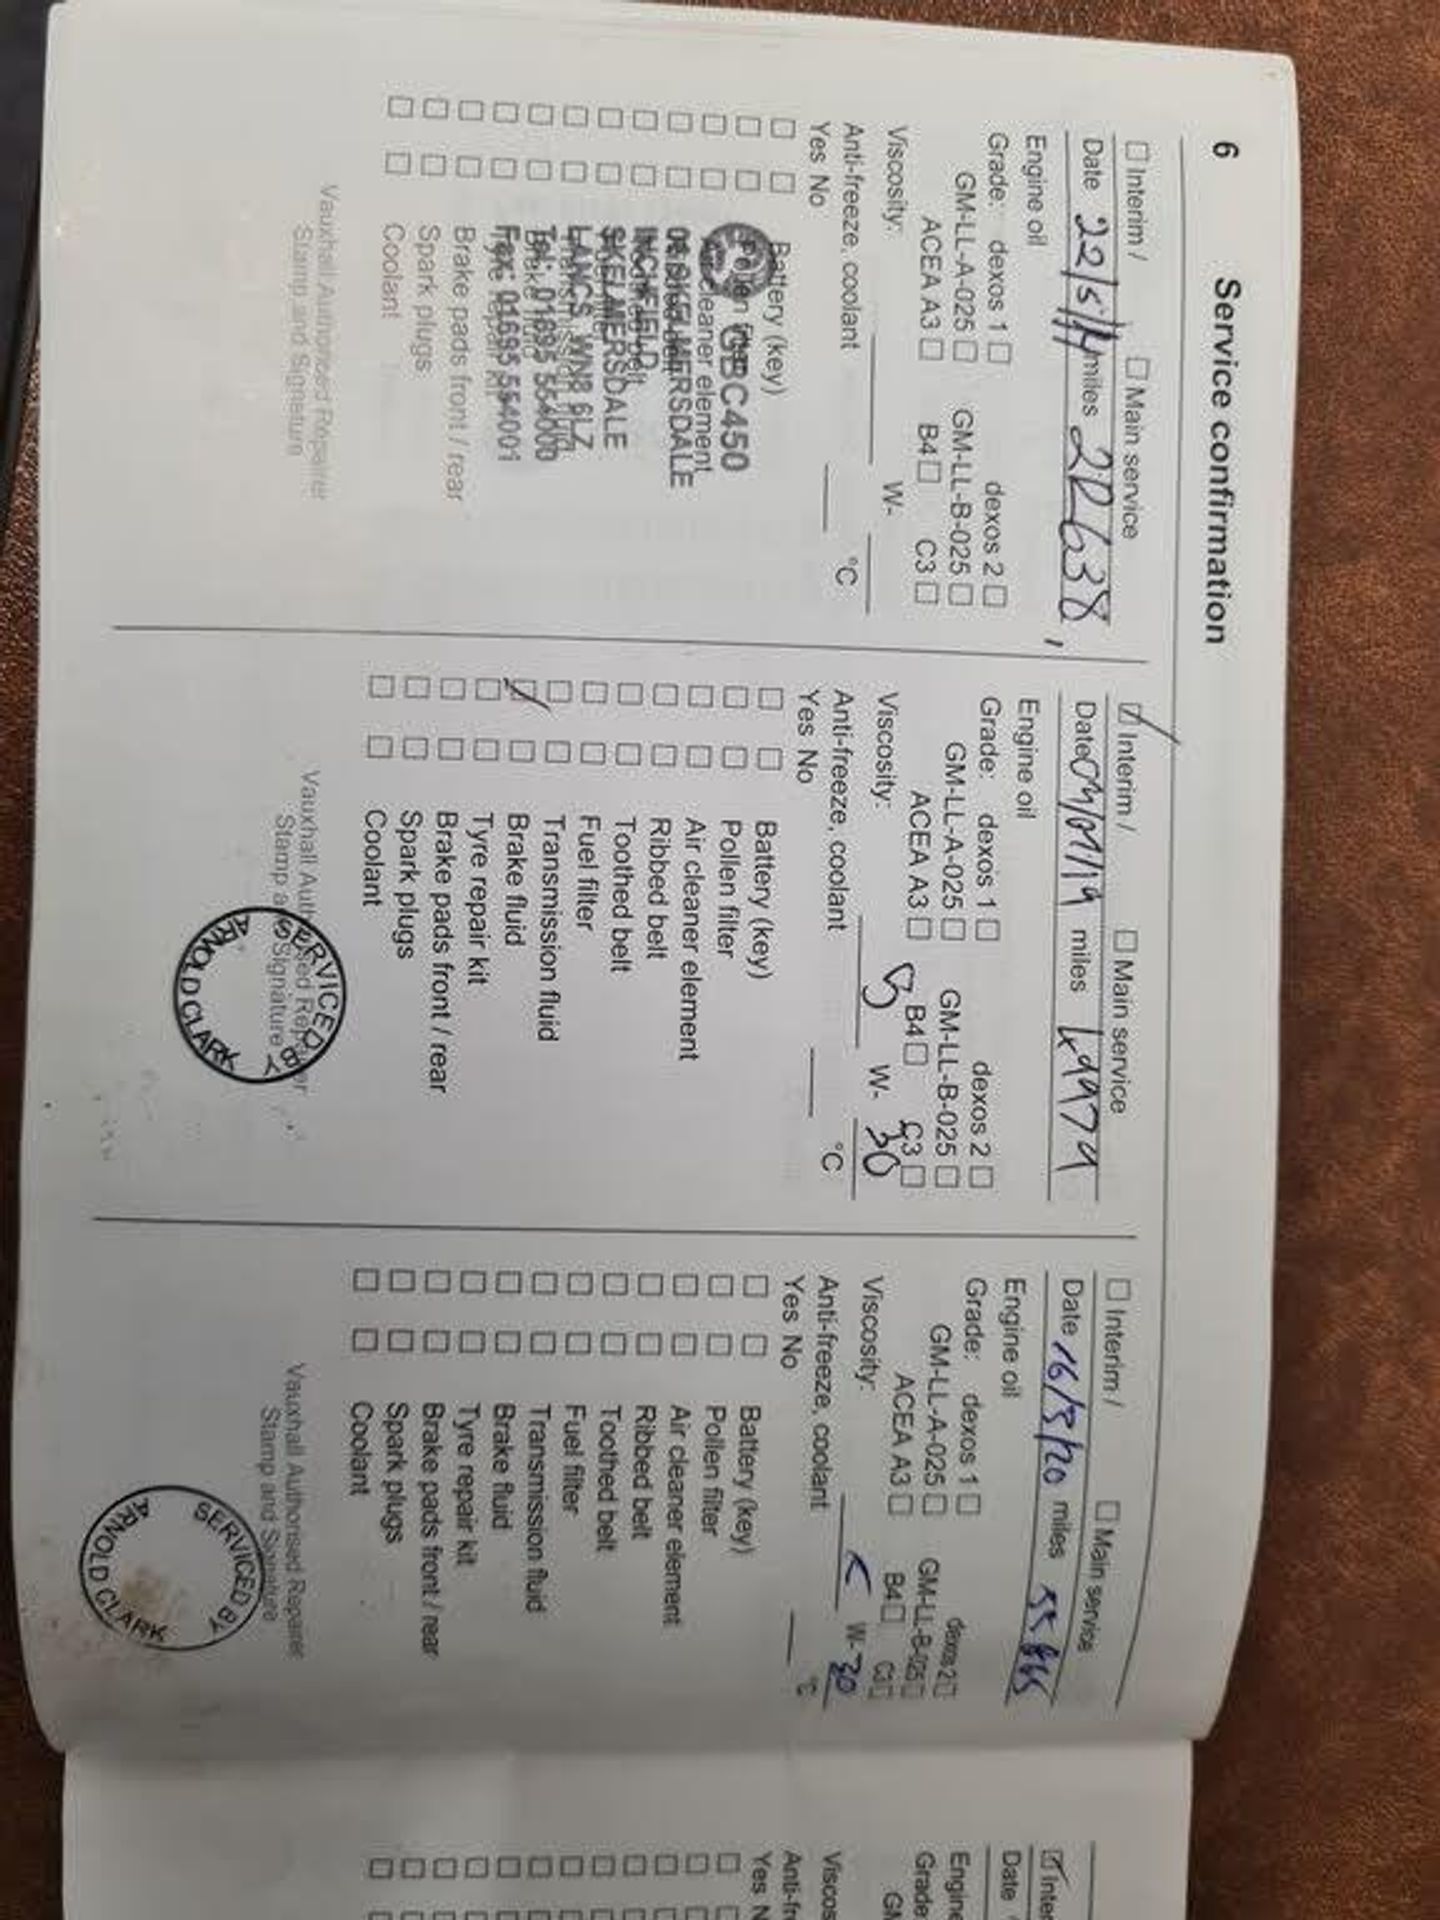 6 Service confirmation
Interim / Main service
Date 22/5/17 miles
Engine oil
Grade: dexos 1 dexos 2
GM-LL-A-025 GM-LL-B-025
ACEA A3 B4 C3
Viscosity: W-
Anti-freeze, coolant °C
Yes No
Battery (key)
Pollen filter
Air cleaner element
GBC450
SKELMERSDALE
INCHFIELD
SKELMERSDALE
LANCS. WN8 6LZ
Tel: 01695 554000
Fax: 01695 554001
Brake pads front / rear
Spark plugs
Coolant
Vauxhall Authorised Repairer
Stamp and Signature
Interim / Main service
Date miles
Engine oil
Grade: dexos 1 dexos 2
GM-LL-A-025 GM-LL-B-025
ACEA A3 B4 C3
Viscosity: 5 W- 30
Anti-freeze, coolant °C
Yes No
Battery (key)
Pollen filter
Air cleaner element
Ribbed belt
Toothed belt
Fuel filter
Transmission fluid
Brake fluid
Tyre repair kit
Brake pads front / rear
Spark plugs
Coolant
Vauxhall Authorised Repairer
Stamp and Signature
SERVICED BY
ARNOLD CLARK
Interim / Main service
Date 16/3/20 miles
Engine oil
Grade: dexos 1 dexos 2
GM-LL-A-025 GM-LL-B-025
ACEA A3 B4 C3
Viscosity: W- 30
Anti-freeze, coolant °C
Yes No
Battery (key)
Pollen filter
Air cleaner element
Ribbed belt
Toothed belt
Fuel filter
Transmission fluid
Brake fluid
Tyre repair kit
Brake pads front / rear
Spark plugs
Coolant
Vauxhall Authorised Repairer
Stamp and Signature
SERVICED BY
ARNOLD CLARK
Inter
Date
Engine
Grade:
GM
Viscos
Anti-fr
Yes N